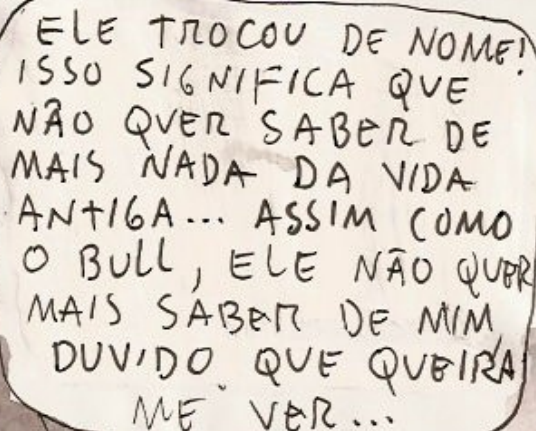 ELE TROCOU DE NOME!
ISSO SIGNIFICA QUE
NÃO QUER SABER DE
MAIS NADA DA VIDA
ANTIGA... ASSIM COMO
O BULL, ELE NÃO QUER
MAIS SABER DE MIM,
DUVIDO QUE QUEIRA
ME VER...